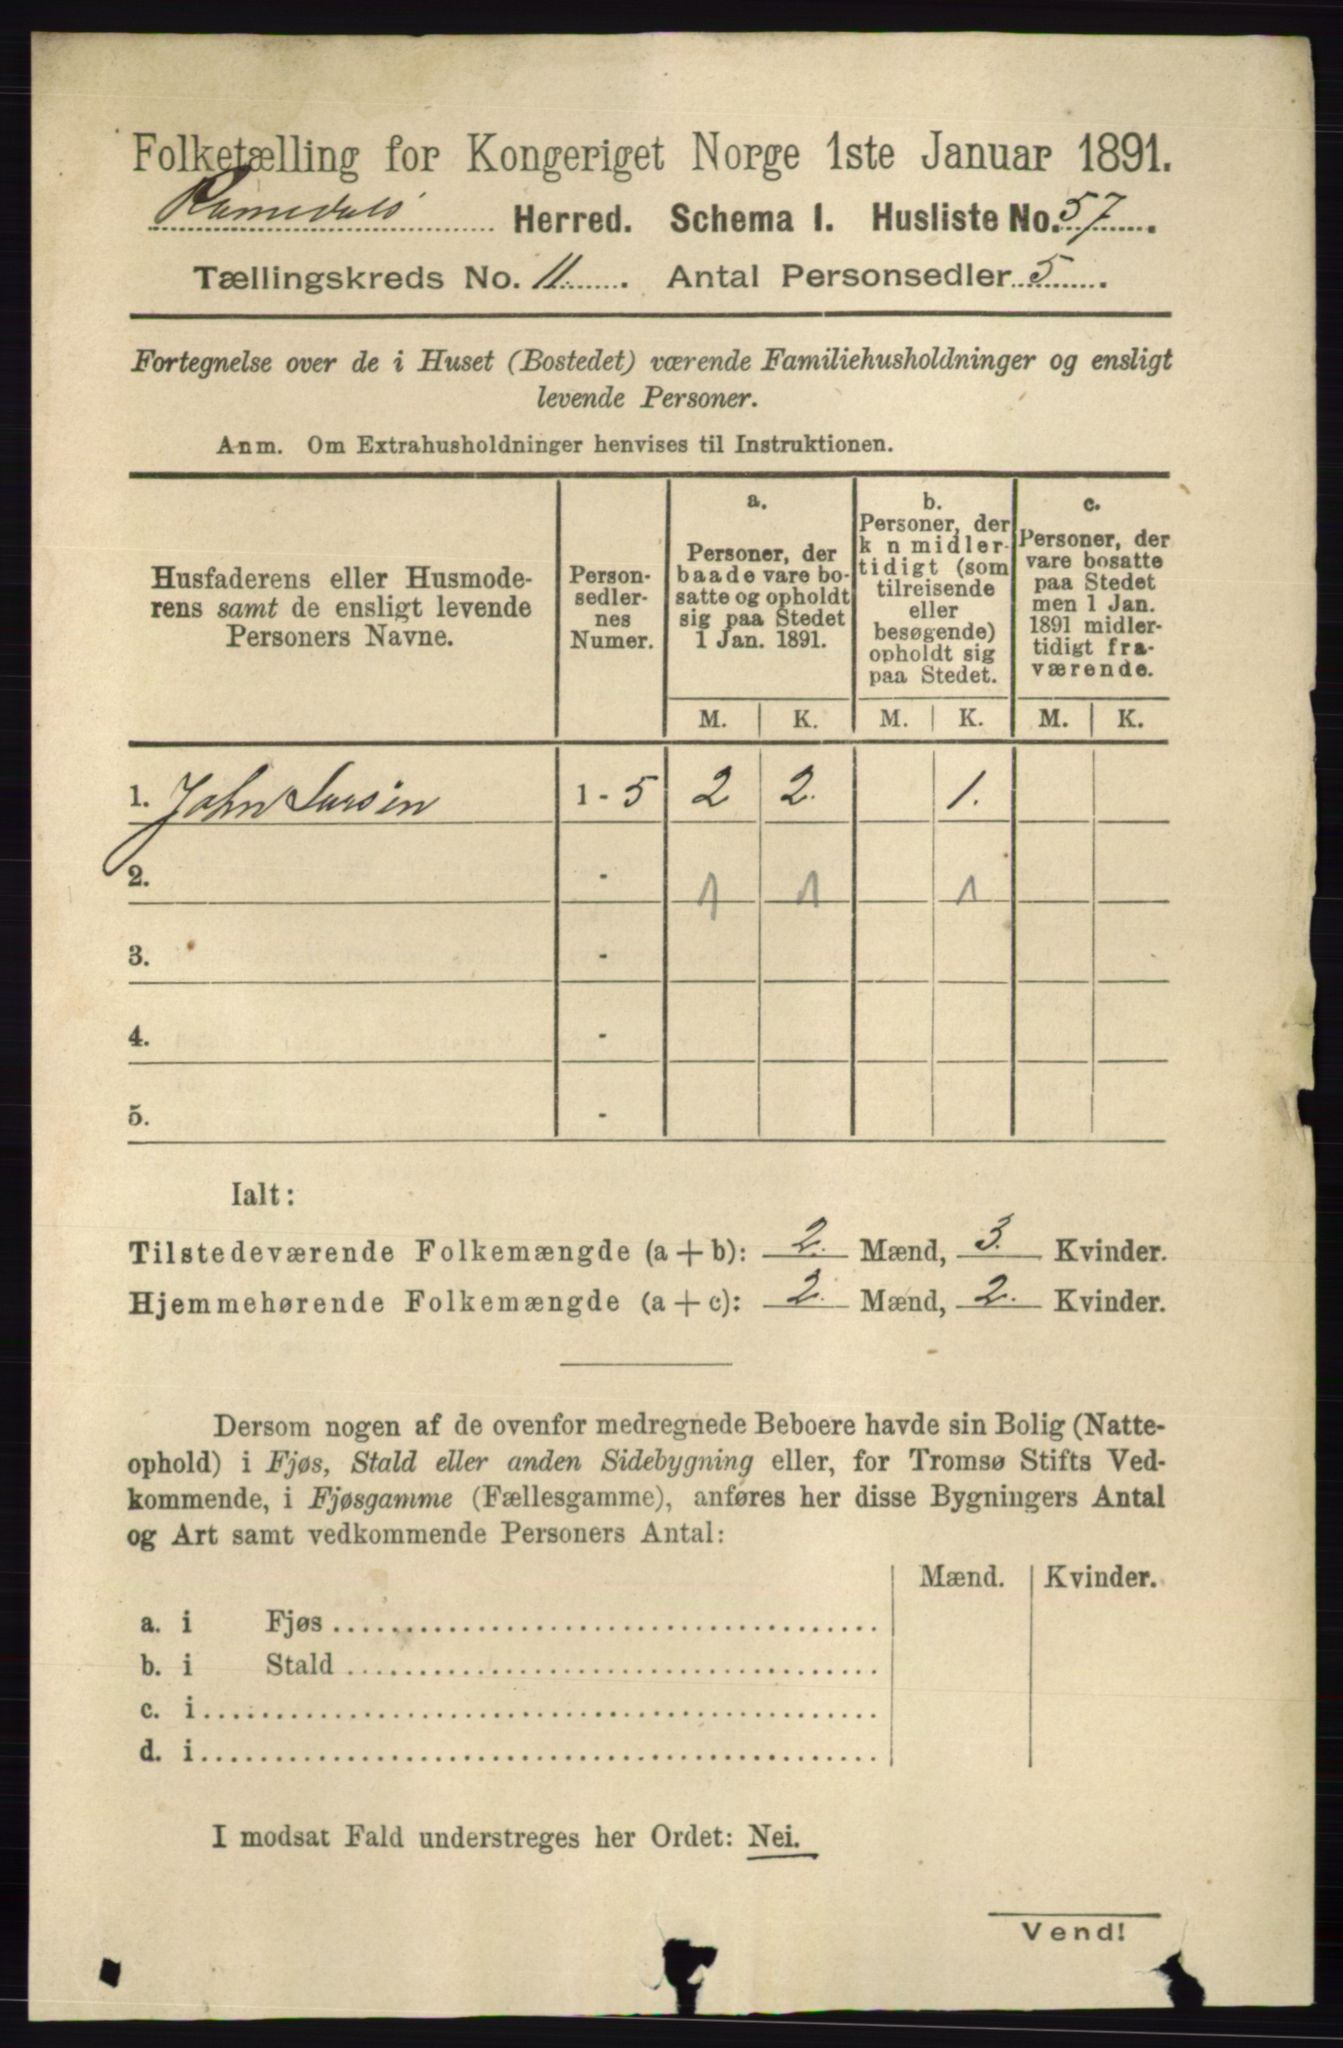 Folketælling for Kongeriget Norge 1ste Januar 1891.
Romedals Herred. Schema I. Husliste No. 57.
Tællingskreds No. 11. Antal Personsedler 5.
Fortegnelse over de i Huset (Bostedet) værende Familiehusholdninger og ensligt
levende Personer.
Anm. Om Extrahusholdninger henvises til Instruktionen.
Husfaderens eller Husmode-
rens samt de ensligt levende
Personers Navne.
Person-
sedler-
nes
Numer.
a.
Personer, der
baade vare bo-
satte og opholdt
sig paa Stedet
1 Jan. 1891.
b.
Personer, der
k n midler-
tidigt (som
tilreisende
eller
besøgende)
opholdt sig
paa Stedet.
c.
Personer, der
vare bosatte
paa Stedet
men 1 Jan.
1891 midler-
tidigt fra-
værende.
M. K. M. K. M. K.
1. John Larsen 1 - 5 2 2. 1.
2. - 1 1 1
3. -
4. -
5. -
Ialt:
Tilstedeværende Folkemængde (a + b): 2. Mænd, 3. Kvinder.
Hjemmehørende Folkemængde (a + c): 2. Mænd, 2. Kvinder.
Dersom nogen af de ovenfor medregnede Beboere havde sin Bolig (Natte-
ophold) i Fjøs, Stald eller anden Sidebygning eller, for Tromsø Stifts Ved-
kommende, i Fjøsgamme (Fællesgamme), anføres her disse Bygningers Antal
og Art samt vedkommende Personers Antal:
Mænd. Kvinder.
a. i Fjøs
b. i Stald
c. i
d. i
I modsat Fald understreges her Ordet: Nei.
Vend!